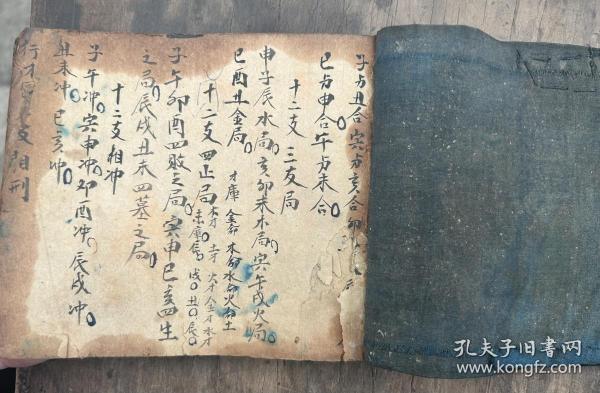 子与丑合 寅与亥合 卯
巳与申合 午与未合
十二支 三友局
申子辰水局 亥卯未木局 寅午戌火局
巳酉丑金局
才庫 金命 木命水命火命土
十二支 四正局
木才 土才 火才 金才 水才
未庫辰 戌 丑 辰
子午卯酉四败之局 寅申巳亥四生
之局 辰戌丑未四墓之局
十二支相冲
子午冲 寅申冲 卯酉冲 辰戌冲
丑未冲 巳亥冲
支相刑
孔夫子旧书网
www.kongfz.com